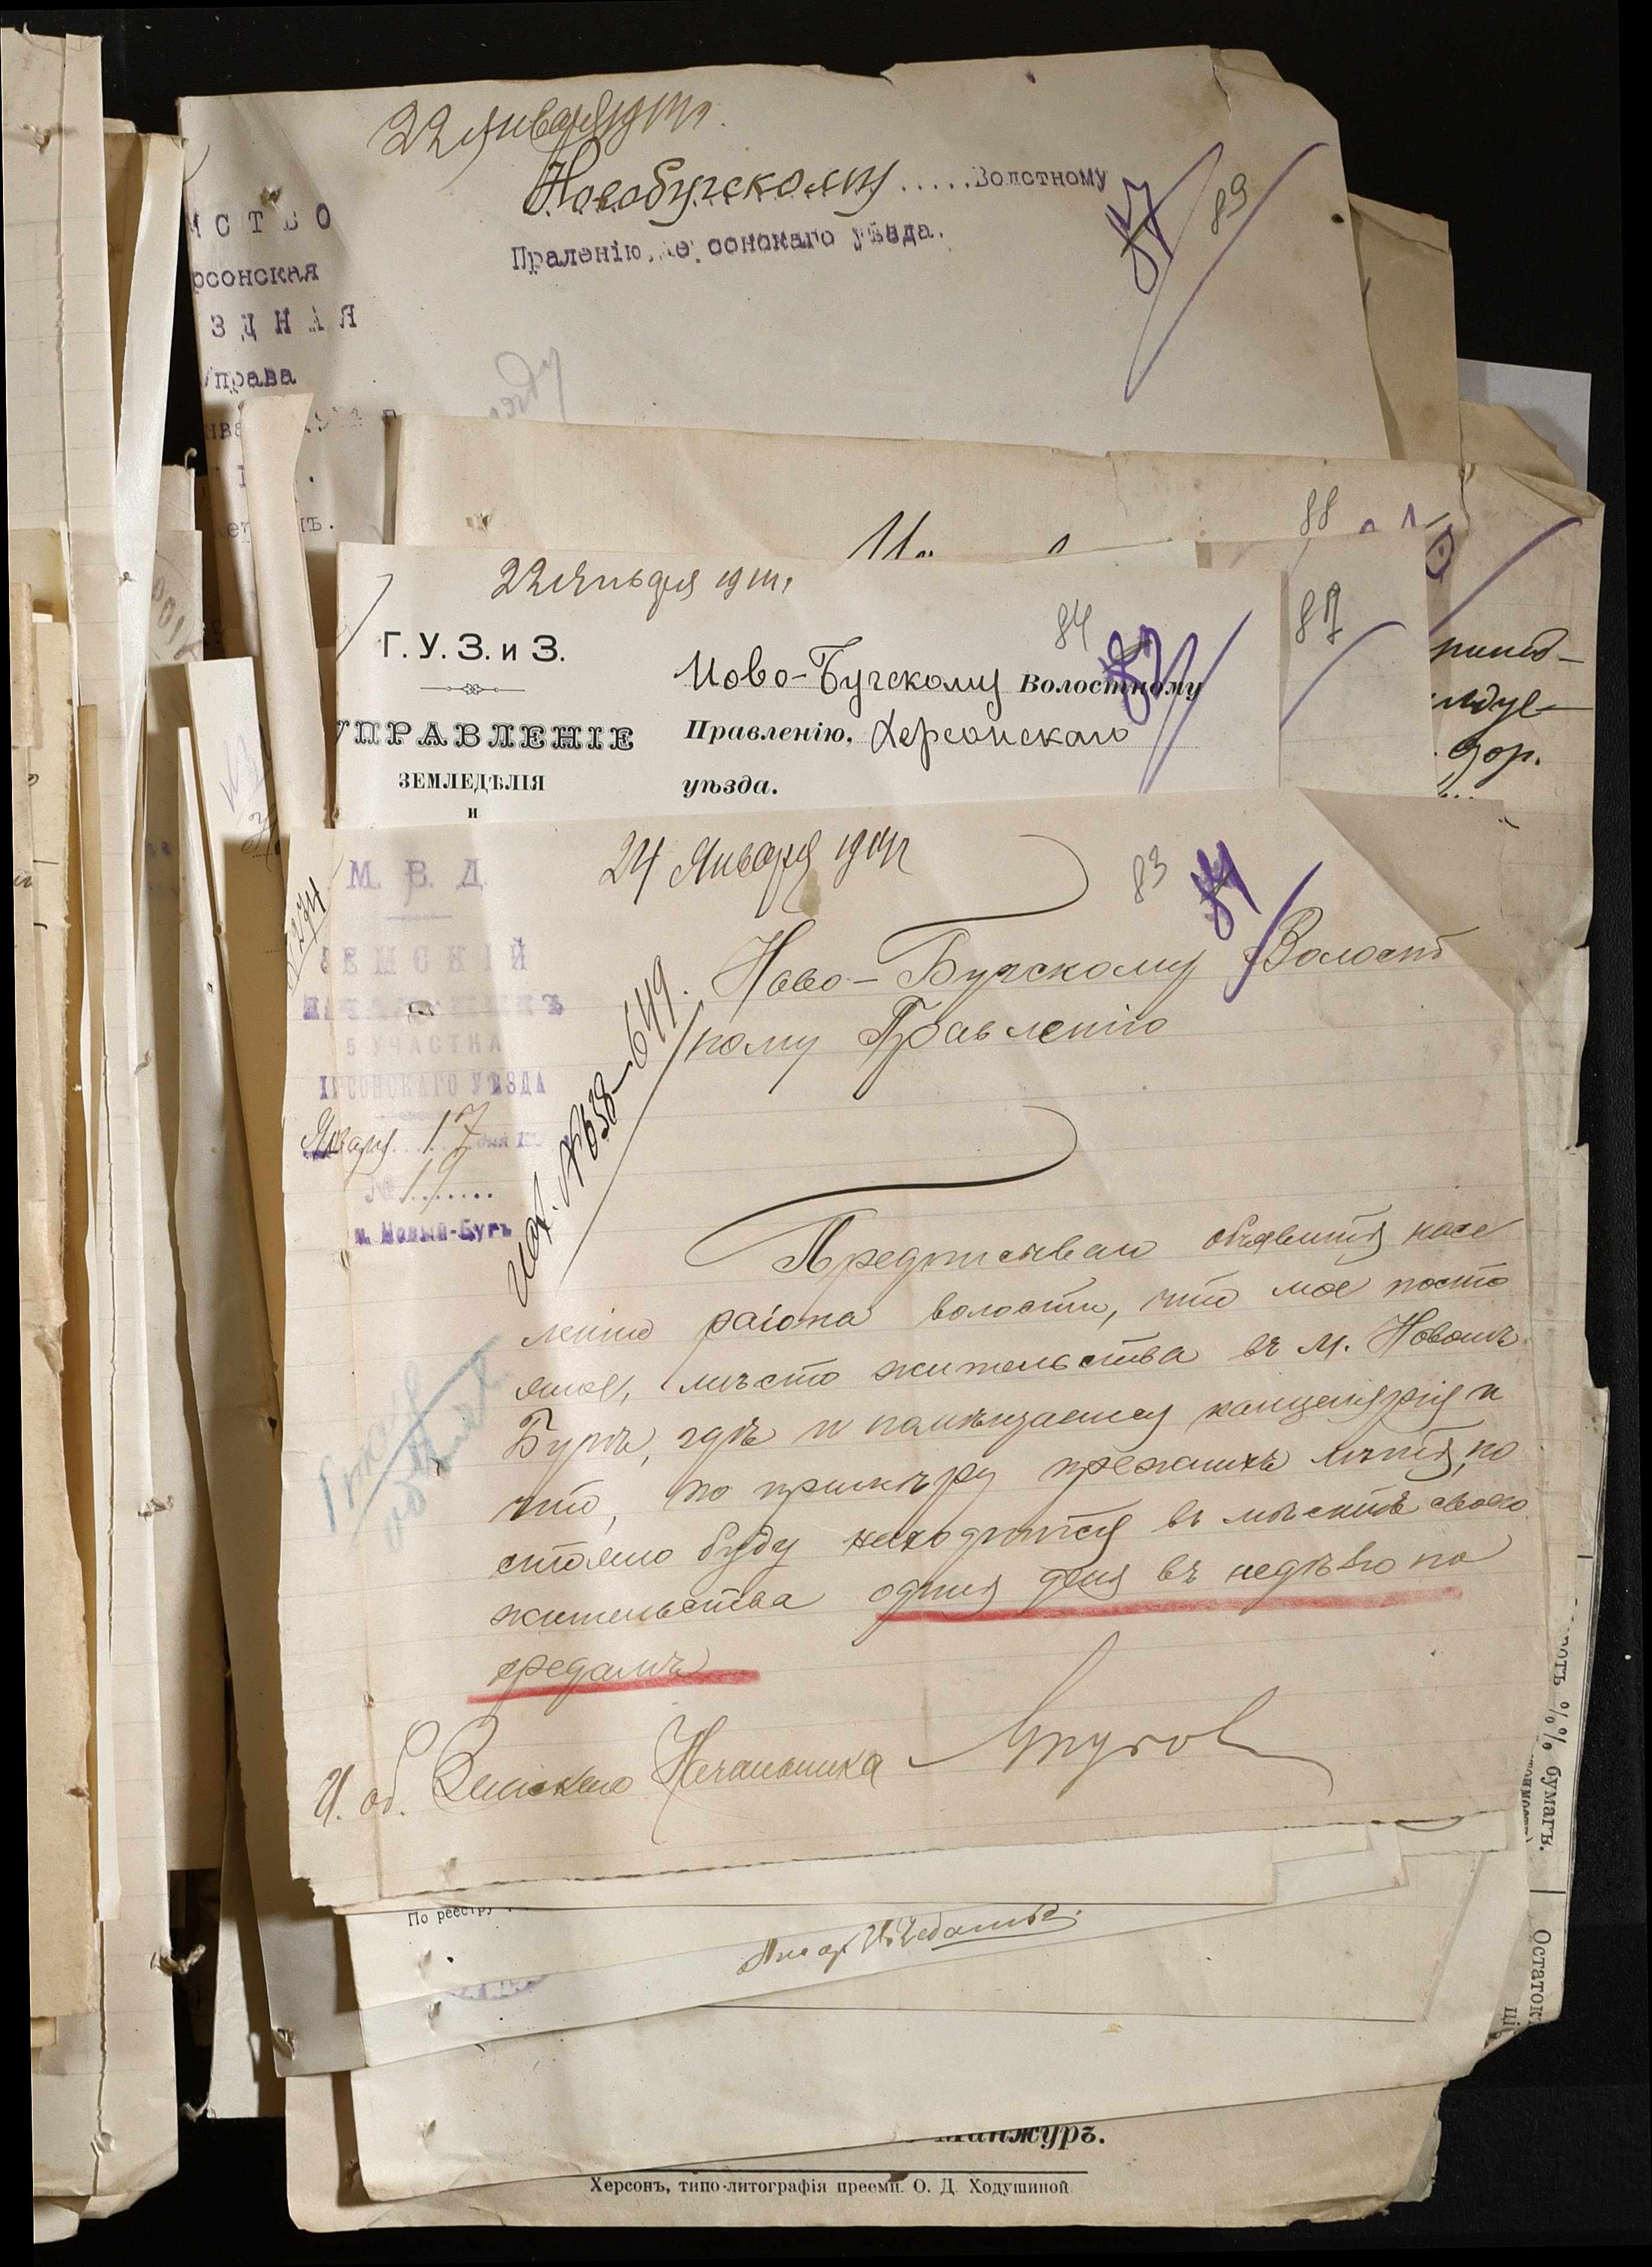 22 января 1911 г.
Новобугскому.....Волостному
Праленію, Херсонскаго уѣзда.
87
89
рсонская
З Д Н А Я
Управа
88
22 января 1911 г.
Г. У. З. и З.
84
87
Ново-Бугскому Волостному
УПРАВЛЕНІЕ
Правленію, Херсонскаго
ЗЕМЛЕДѢЛІЯ
уѣзда.
и
24 Января 1911 г
83
84
М. В. Д.
ЗЕМСКІЙ
НАЧАЛЬНИКЪ
5 УЧАСТКА
ХЕРСОНСКАГО УѢЗДА
Января 17 дня
№ 19
м. Новый-Бугъ
№ 274
исх. № 638–649.
Ново-Бугскому Волост
ному Правленію
Предписываю объявить насе
ленію раіона волости, что мое посто
янное, мѣсто жительства въ м. Новомъ
Бугѣ, гдѣ и помѣщается канцелярія и
что, по примѣру прежнихъ лѣтъ, по
стоянно буду находится въ мѣстѣ своего
жительства одинъ день въ недѣлю по
средамъ
И. об. Земскаго Начальника
По реестру
Манжуръ.
Херсонъ, типо-литографія преемн. О. Д. Ходушиной
%% бумагъ.
Остаток